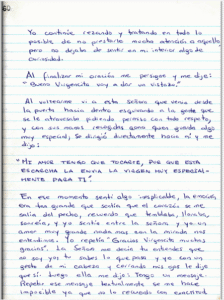 60
Yo continúe rezando y tratando en todo lo
posible de no prestarle mucha atención a aquello
pero no dejaba de sentir en mi interior algo de
curiosidad.
Al finalizar mi oración me persigno y me dije:
"Bueno Virgencita voy a dar un vistazo".
Al voltearme vi a esta Señora que venía desde
la puerta hacia dentro esquivando a la gente que
se le atravesaba pidiendo permiso con todo respeto,
y con sus manos recogidas como quien guarda algo
muy especial, se dirigió directamente hacia mi y me
dijo:
"ME HACE TENGO QUE TOCARTE, PUE QUE ESTA
ESCARCHA LA ENVIA LA VIRGEN MUY ESPECIAL-
MENTE PARA TI".
En ese momento sentí algo inexplicable, la emoción
era tan grande que sentía que el corazón se me
salía del pecho, recuerdo que temblaba, lloraba,
sonreía, y yo sentía entre la señora y yo, un
amor muy grande nada mas con la mirada nos
entendíamos. Yo repetía "Gracias Virgencita mucha
gracia". La Señora me decía tu entiendes que
no soy yo; tu sabes lo que pasa y yo con un
gesto de mi cabeza y cerrando mis ojos le dije
que sí: luego ella me dijo: Tengo un mensaje.
Repeho ese mensaje textualmente se me hace
imposible ya que no lo recuerdo con exactitud